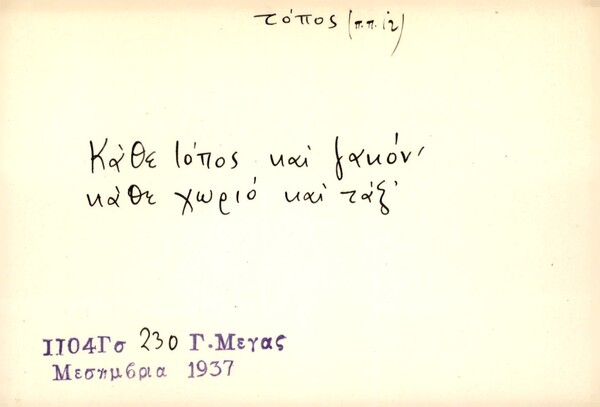 τόπος (π.π. ί2)
Κάθε τόπος καὶ ζακόν'
κάθε χωριό καὶ τάξ'
1104Γσ 230 Γ. Μεγας
Μεσημβρια 1937